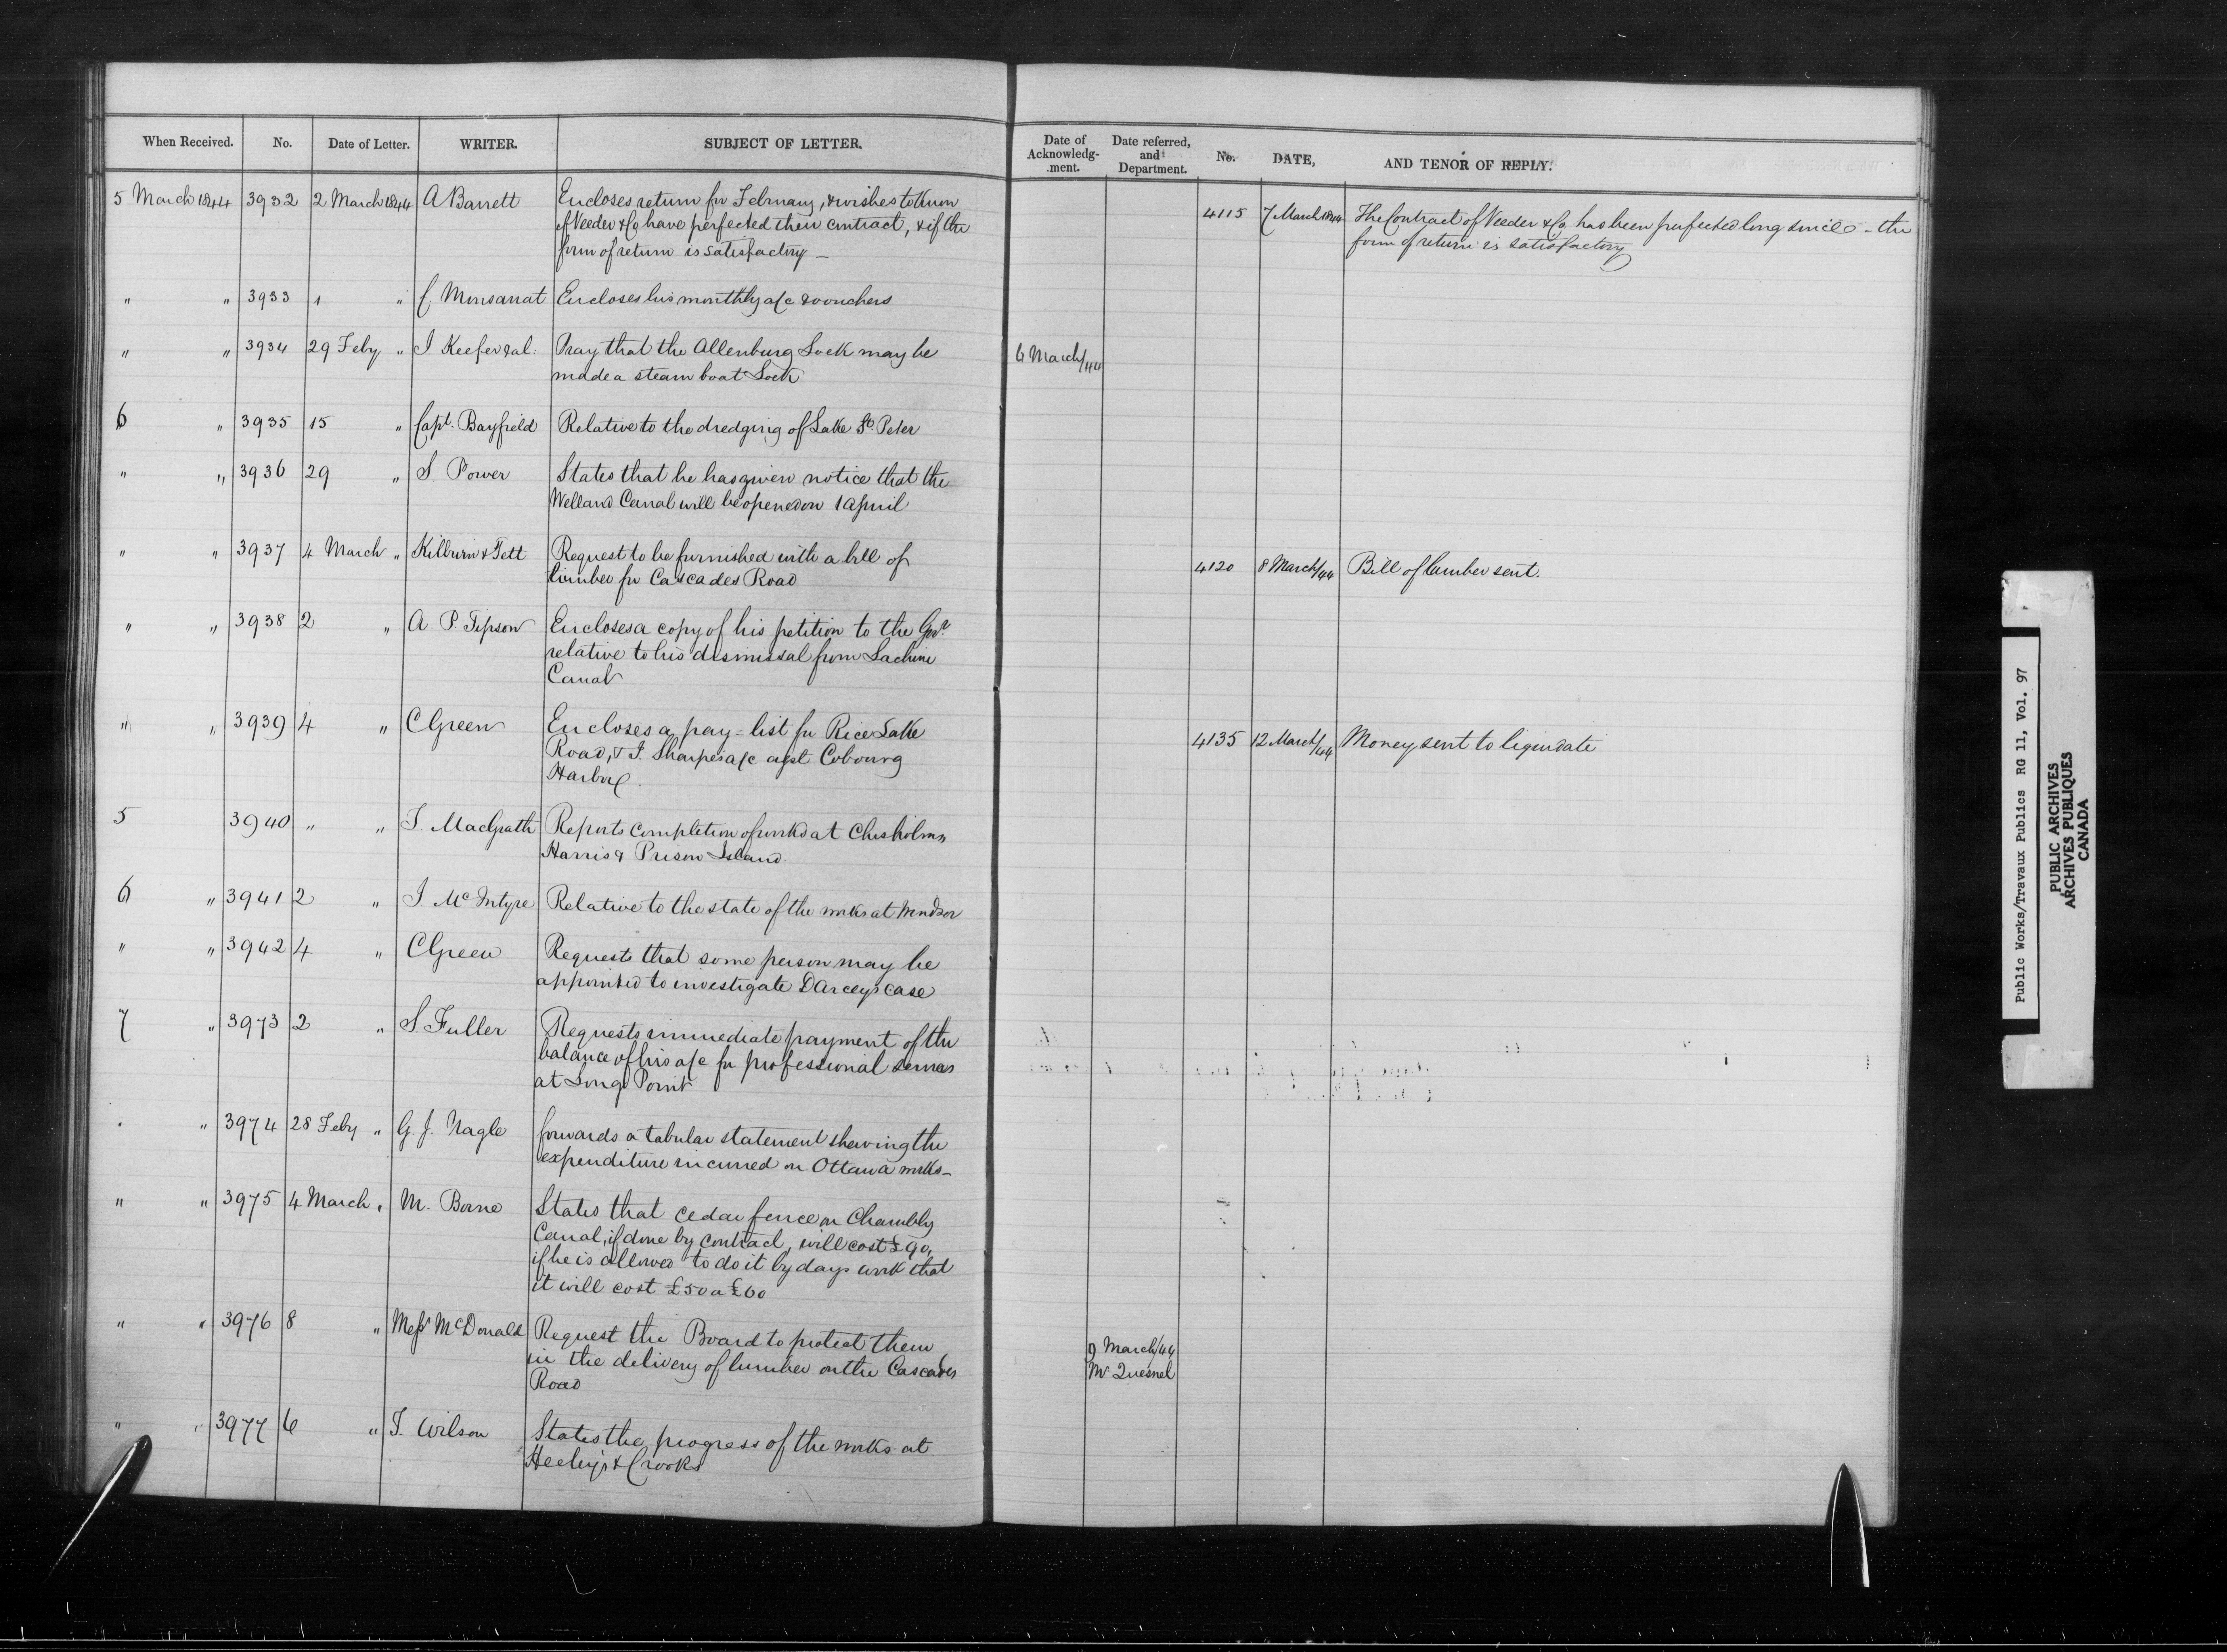 When Received. No. Date of Letter. WRITER. SUBJECT OF LETTER. Date of Acknowledg-ment. Date referred, and Department. No. DATE, AND TENOR OF REPLY.
5 March 1844 3932 2 March 1844 A Barrett Encloses return for February, & wishes to know
if Veeder & Co have perfected their contract, & if the
form of return is satisfactory —
4115 7 March 1844 The Contract of Veeder & Co has been perfected long since - the
form of return is satisfactory
" " 3933 1 " C. Monsarrat Encloses his monthly a/c & vouchers
" " 3934 29 Feby " J Keefer & al: Pray that the Allenburg Lock may be
made a steam boat Lock
6 March/44
6 " 3935 15 " Capt. Bayfield Relative to the dredging of Lake St. Peter
" " 3936 29 " S Power States that he has given notice that the
Welland Canal will be opened on 1 April
" " 3937 4 March " Kilburn & Tett Request to be furnished with a bill of
timber for Cascades Road
4120 8 March/44 Bill of lumber sent.
" " 3938 2 " A. P. Jepson Encloses a copy of his petition to the Govr
relative to his dismissal from Lachine
Canal
" " 3939 4 " C Green Encloses a pay-list for Rice Lake
Road, & J. Sharpe's a/c agst Cobourg
Harbor
4135 12 March/44 Money sent to liquidate
5 3940 " " T. MacGrath Reports completion of works at Chisholms,
Harris & Prison Island
6 " 3941 2 " J. McIntyre Relative to the state of the works at Windsor
" " 3942 4 " C Green Requests that some person may be
appointed to investigate DArceys case
7 " 3973 2 " S. Fuller Requests immediate payment of the
balance of his a/c for professional services
at Long Point
" " 3974 28 Feby " G. J. Nagle forwards a tabular statement shewing the
expenditure incurred on Ottawa works -
" " 3975 4 March " M. Borne States that cedar fence on Chambly
Canal, if done by contract, will cost £90,
if he is allowed to do it by days work that
it will cost £50 a £60
" " 3976 8 " Messrs McDonald Request the Board to protect them
in the delivery of lumber on the Cascades
Road
9 March/44
Mr Quesnel
" " 3977 6 " T. Wilson States the progress of the works at
Heeley's & Crooks
Public Works/Travaux Publics RG 11, Vol. 97
PUBLIC ARCHIVES
ARCHIVES PUBLIQUES
CANADA